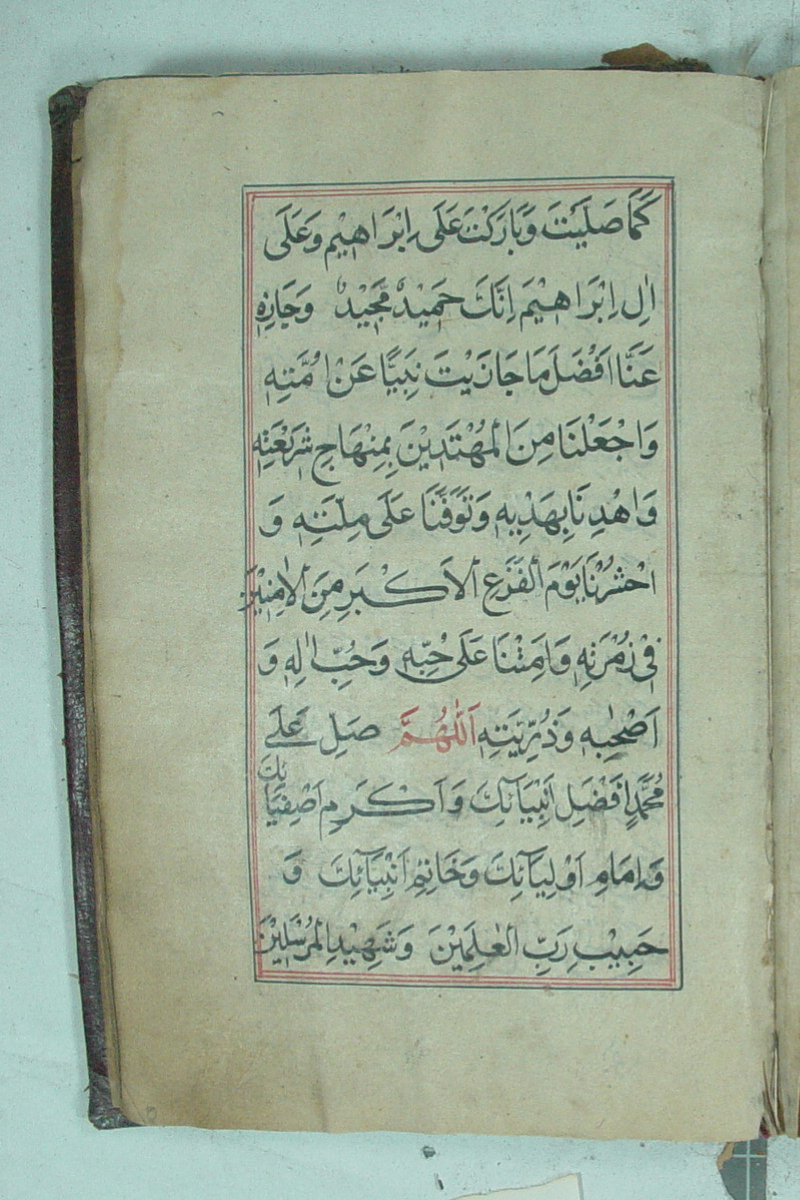 كَمَا صَلَّيْتَ وَبَارَكْتَ عَلَى اِبْرَاهِيْمَ وَعَلَى
اٰلِ اِبْرَاهِيْمَ اِنَّكَ حَمِيْدٌ مَّجِيْدٌ وَجَازِهٖ
عَنَّا اَفْضَلَ مَا جَازَيْتَ نَبِيًّا عَنْ اُمَّتِهٖ
وَاجْعَلْنَا مِنَ الْمُهْتَدِيْنَ بِمِنْهَاجِ شَرِيْعَتِهٖ
وَاهْدِنَا بِهَدْيِهٖ وَتَوَفَّنَا عَلَى مِلَّتِهٖ وَ
احْشُرْنَا يَوْمَ الْفَزَعِ الْاَكْبَرِ مِنَ الْاٰمِنِيْنَ
فِيْ زُمْرَتِهٖ وَاَمِتْنَا عَلَى حُبِّهٖ وَحُبِّ اٰلِهٖ وَ
اَصْحٰبِهٖ وَذُرِّيَّتِهٖ اَللّٰهُمَّ صَلِّ عَلَى
مُحَمَّدٍ اَفْضَلِ اَنْبِيَآئِكَ وَاَكْرَمِ اَصْفِيَائِكَ
وَاِمَامِ اَوْلِيَآئِكَ وَخَاتِمِ اَنْبِيَآئِكَ وَ
حَبِيْبِ رَبِّ الْعٰلَمِيْنَ وَشَهِيْدِ الْمُرْسَلِيْنَ